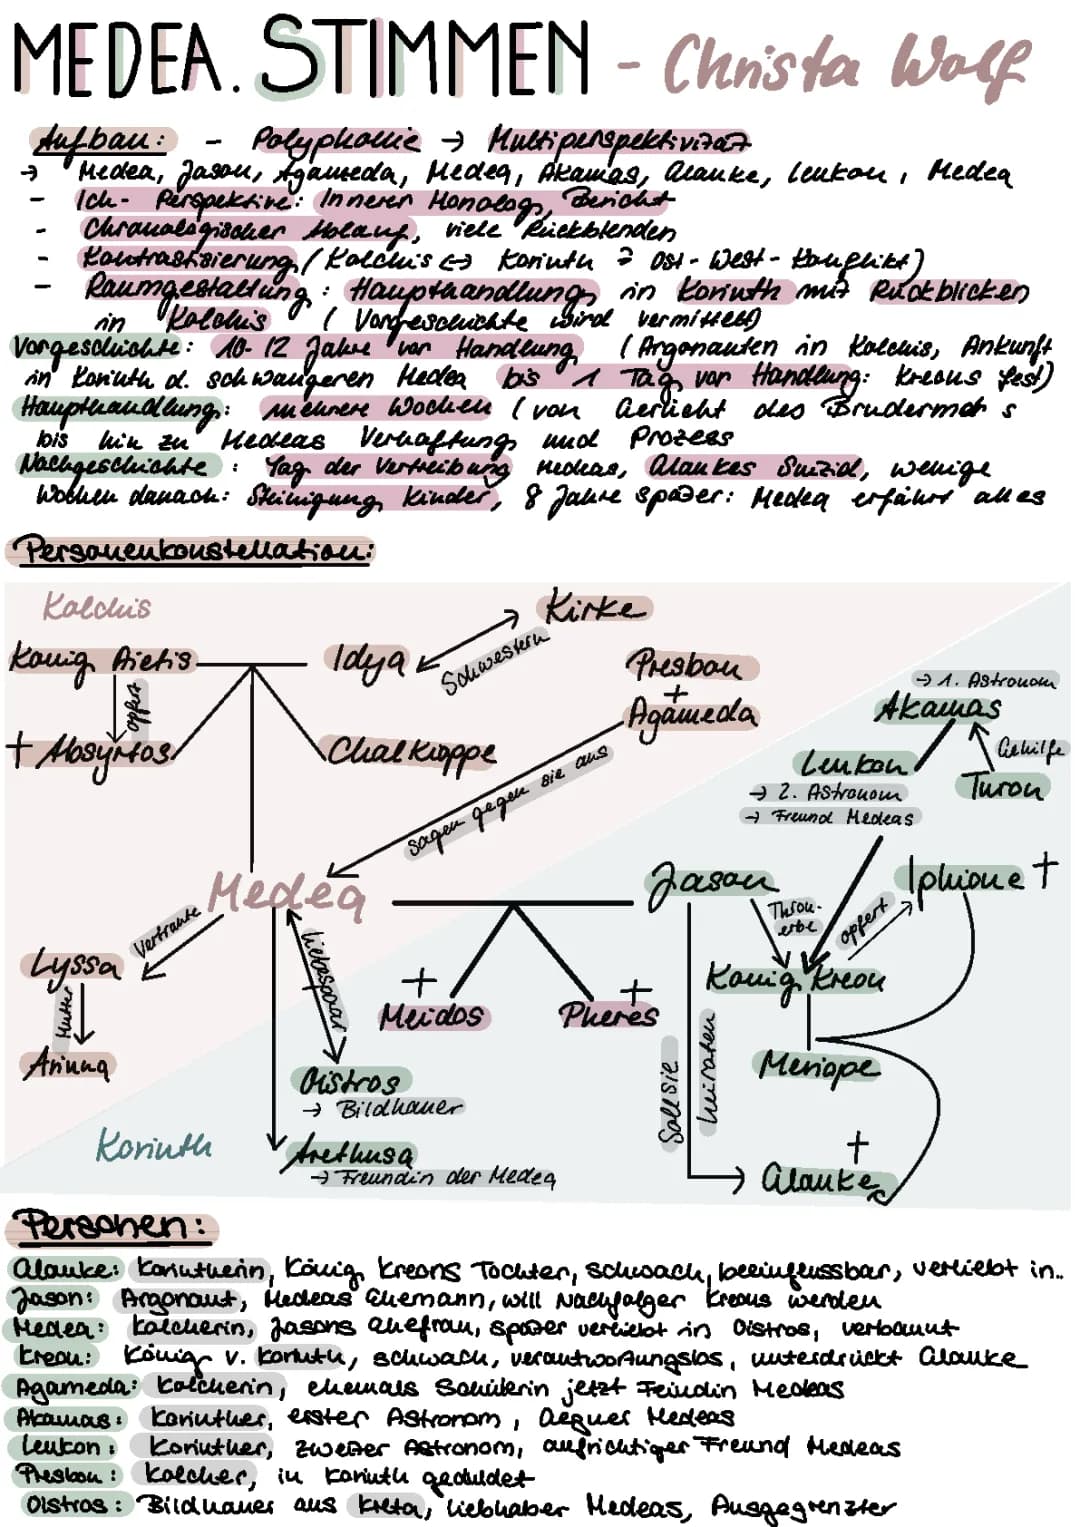 MEDEA. STIMMEN - Christa Wolf
Aufbau: - Polyphonie → Multiperspektivität
→ Medea, Jason, Agameda, Medea, Akamas, Glauke, Leukon, Medea
- Ich-Perspektive: Innerer Monolog, Bericht
- Chronologischer Ablauf, viele Rückblenden
- Kontrastierung (Kolchis ↔ Korinth ≙ Ost-West-Konflikt)
- Raumgestaltung: Haupthandlung in Korinth mit Rückblicken
in Kolchis (Vorgeschichte wird vermittelt)
Vorgeschichte: 10-12 Jahre vor Handlung (Argonauten in Kolchis, Ankunft
in Korinth d. schwangeren Medea bis 1 Tag vor Handlung: Kreons Fest)
Haupthandlung: mehrere Wochen (von Gerücht des Brudermords
bis hin zu Medeas Verhaftung und Prozess
Nachgeschichte: Tag der Vertreibung Medeas, Glaukes Suizid, wenige
Wochen danach: Steinigung Kinder, 8 Jahre später: Medea erfährt alles
Personenkonstellation:
Kolchis
Kirke
König Aietis
Idya
Schwestern
Presbon
+
Agameda
→ 1. Astronom
Akamas
opfert
+ Absyrtos
Chalkioppe
sagen gegen sie aus
Leukon
→ 2. Astronom
→ Freund Medeas
Gehilfe
Turon
Medea
Jason
Iphione +
Vertraute
Lyssa
Mutter
Arinna
Liebespaar
+
Meidos
+
Pheres
Thron-
erbe
opfert
König Kreon
Soll sie
heiraten
Meriope
Oistros
→ Bildhauer
Korinth
Arethusa
→ Freundin der Medea
+
Glauke
Personen:
Glauke: Korintherin, König Kreons Tochter, schwach, beeinflussbar, verliebt in..
Jason: Argonaut, Medeas Ehemann, will Nachfolger Kreons werden
Medea: Kolcherin, Jasons Ehefrau, später verliebt in Oistros, verbannt
Kreon: König v. Korinth, schwach, verantwortungslos, unterdrückt Glauke
Agameda: Kolcherin, ehemals Schülerin jetzt Feindin Medeas
Akamas: Korinther, erster Astronom, Gegner Medeas
Leukon: Korinther, zweiter Astronom, aufrichtiger Freund Medeas
Presbon: Kolcher, in Korinth geduldet
Oistros: Bildhauer aus Kreta, Liebhaber Medeas, Ausgegrenzter